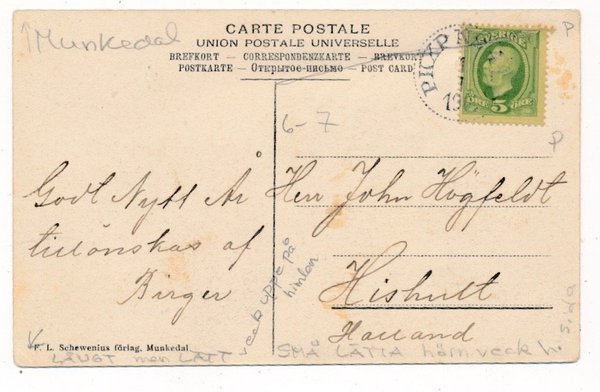 Munkedal
CARTE POSTALE
UNION POSTALE UNIVERSELLE
BREFKORT — CORRESPONDENZKARTE — BREVKORT
POSTKARTE — Открытое письмо — POST CARD
PKXP N
SVERIGE
ÖRE 5 ÖRE
19
P
P
6-7
Godt Nytt År
tillönskas af
Birger
Herr John Högfeldt
Hishult
Halland
veck uppe på
himlen
F. L. Schewenius förlag, Munkedal
LÅNGT men LÄTT
SMÅ LÄTTA hörnveck h. s. da